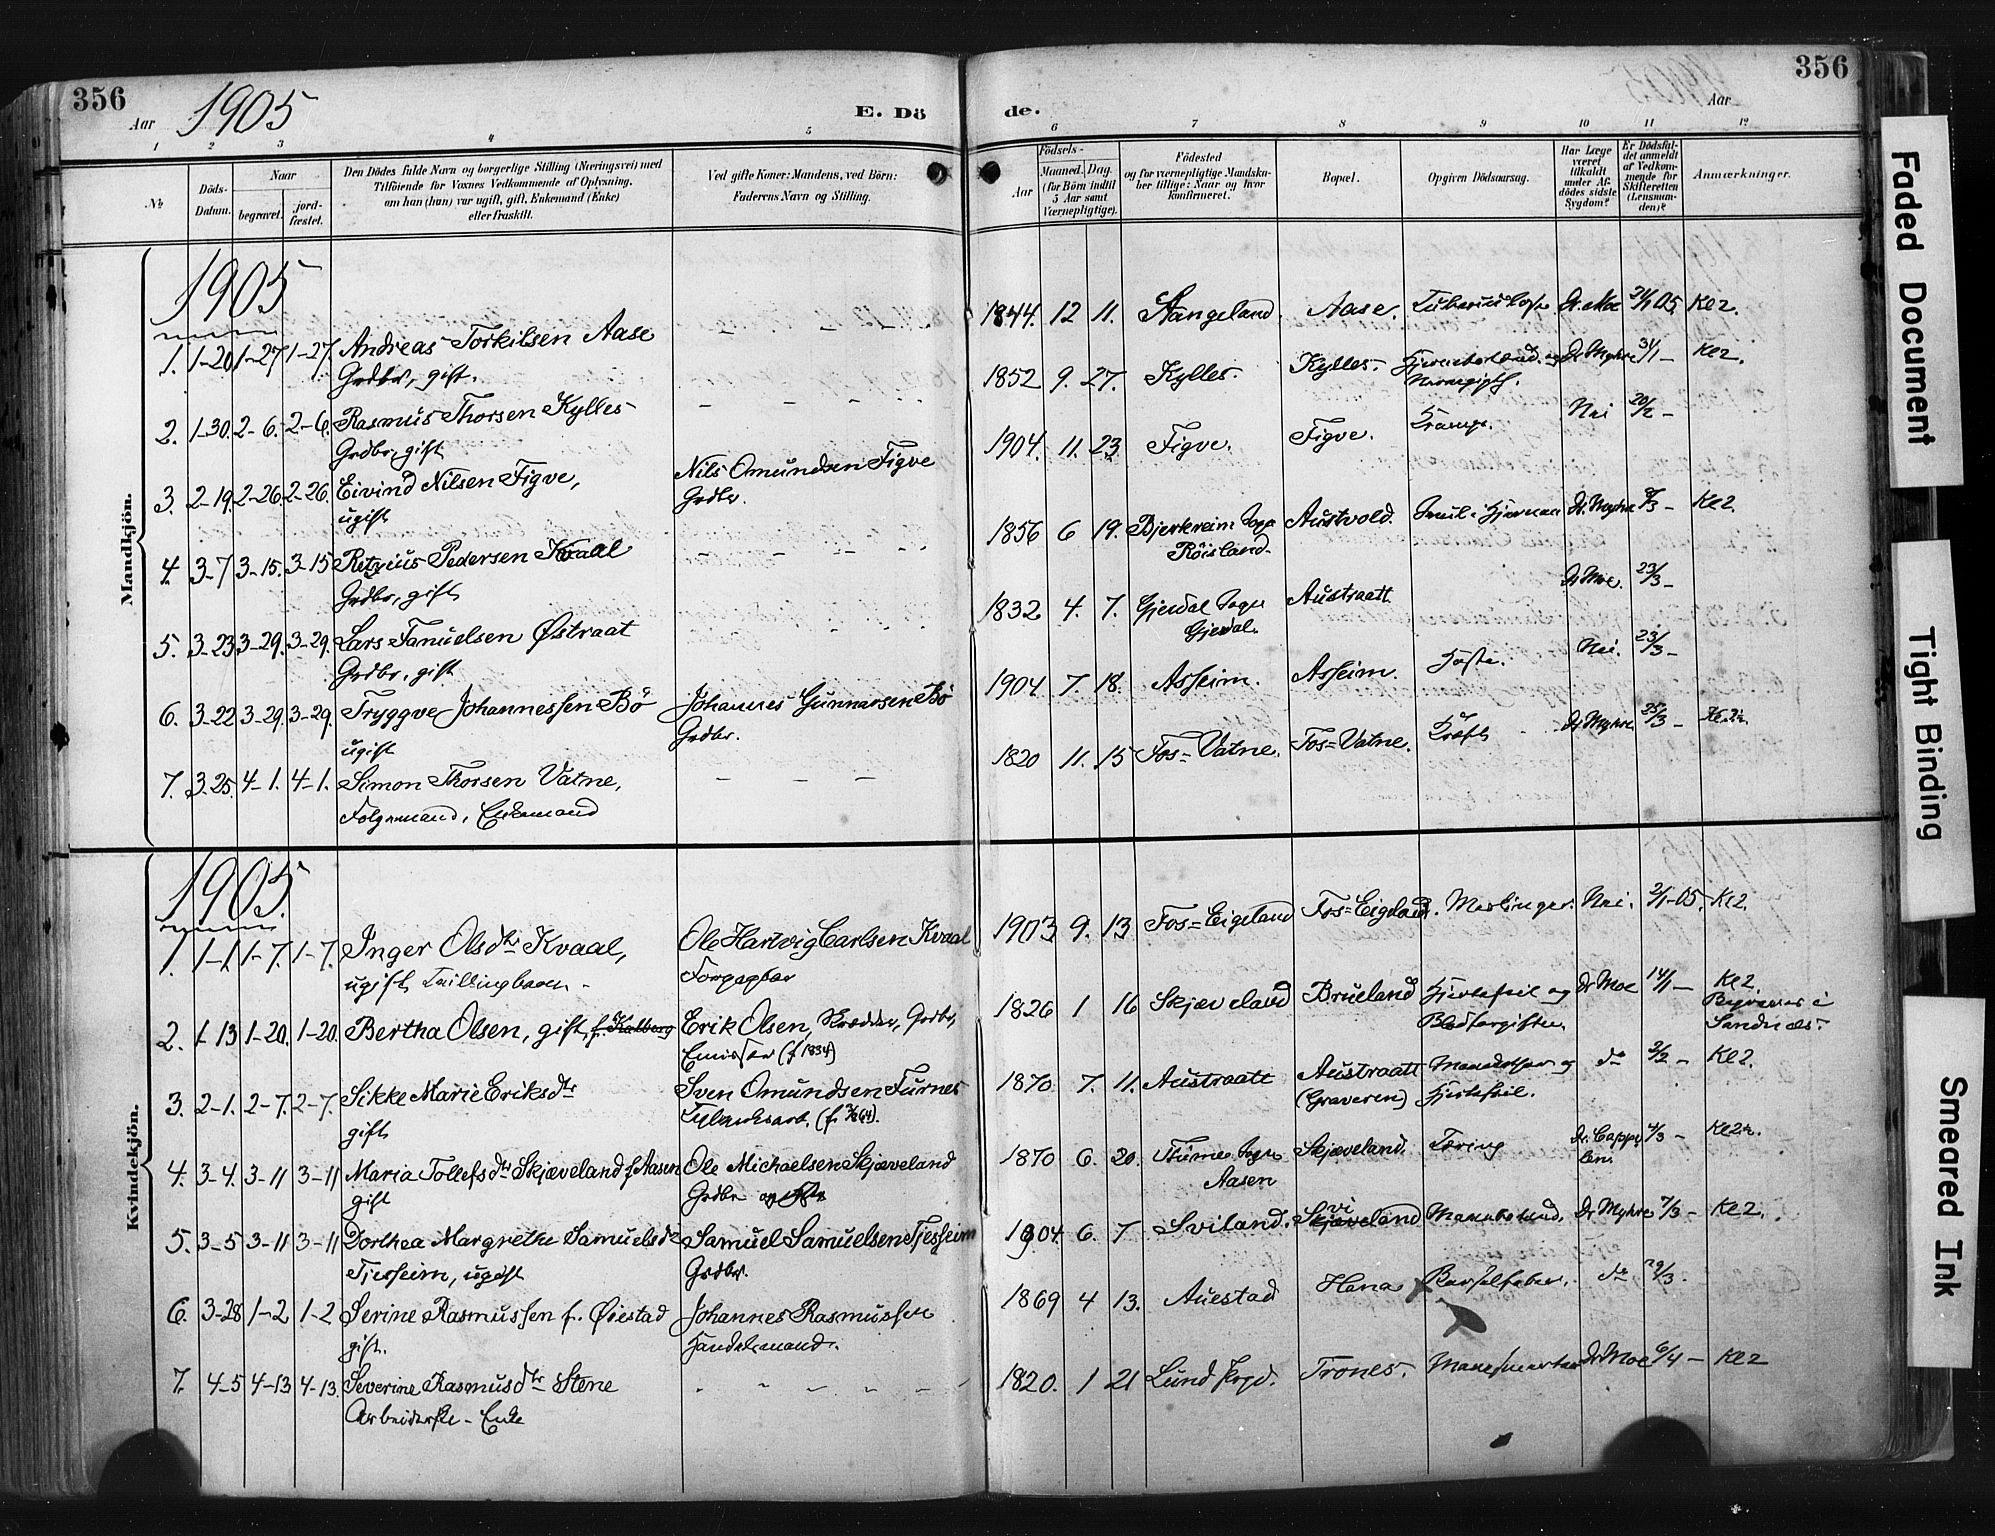 356
Aar 1905
E. Dö
1 2 3 4 5
№
Döds-Datum.
Naar
begravet.
jord-fæstet.
Den Dödes fulde Navn og borgerlige Stilling (Næringsvei) med
Tilföiende for Voxnes Vedkommende af Oplysning,
om han (hun) var ugift, gift, Enkemand (Enke)
eller fraskilt.
Ved gifte Koner: Mandens, ved Börn:
Faderens Navn og Stilling.
Mandkjön.
1905
1. 1-20 1-27 1-27. Andreas Torkilsen Aase
Grdbr, gift.
2. 1-30. 2-6. 2-6. Rasmus Thorsen Kylles
Grdbr, gift
3. 2-19. 2-26. 2-26. Eivind Nilsen Figve, Nils Omundsen Figve
ugift Grdbr.
4. 3-7 3-15. 3-15 Pedersen Kvaal
Grdbr, gift
5. 3-23 3-29. 3-29. Lars Østraat
Grdbr, gift
6. 3-22 3-29. 3-29. Tryggve Johannessen Bö Johannes Gunnarsen Bö
ugift Grdbr.
7. 3-25. 4-1. 4-1. Simon Thorsen Vatne,
Folgemand, Enkemand
Kvindekjön.
1905.
1. 1-1 1-7. 1-7. Inger Olsdtr Kvaal, Ole Hartvig Carlsen Kvaal
ugift, Tvillingbarn Forpagter
2. 1-13 1-20. 1-20. Bertha Olsen, gift, f. Kalberg Erik Olsen, Grdbr,
(f 1834)
3. 2-1. 2-7. 2-7. Sikke Marie Eriksdtr Sven Omundsen Furnes
gift
4. 3-4. 3-11 3-11 Maria Tollefsdtr Skjæveland f Aasen Ole Michaelsen Skjæveland
gift Grdbr
5. 3-5 3-11 3-11 Dorthea Margrethe Samuelsdtr Samuel Samuelsen Tjessheim
Tjessheim, ugift Grdbr.
6. 3-28 1-2 1-2 Serine Rasmussen f. Øiestad Johannes Rasmussen
gift. Handelsmand.
7. 4-5 4-13 4-13. Severine Rasmusdtr Stene
Arbeiderske - Enke
de.
356
Aar
6 7 8 9 10 11 12
Aar
Födsels-
Maaned. Dag
(for Börn indtil
5 Aar samt
Værnepligtige).
Födested
og for værnepligtige Mandska-
ber tillige: Naar og hvor
konfirmeret.
Bopæl.
Opgiven Dödsaarsag.
Har Læge
været
tilkaldt
under Af-
dödes sidste
Sygdom?
Er Dödsfal-
det anmeldt
af Vedkom-
mende for
Skifteretten
(Lensman-
den)?
Anmærkninger.
1844. 12 11. Stangeland. Aase. Dr. Moe Kl 2.
1852 9. 27. Kylles. Kylles. Dr. Myhre 31/1 - Kl 2.
1904. 11. 23 Figve. Figve. Krampe. Nei 20/2 -
1856 6 19. Bjerkreim Sogn Austvold. Dr. Myhre Kl 2.
Röisland.
1832 4. 7. Gjesdal Sogn Austraatt Dr Moe. 23/3 -
Gjesdal.
1904 7. 18. Assheim. Assheim. Hoste. Nei. 23/3 -
1820 11. 15 Fos=Vatne. Fos=Vatne. Kræft Dr. Myhre 25/3 -
1903 9. 13 Fos=Eigeland Fos=Eigeland. Meslinger. Nei. 2/1-05. Kl 2.
1826 1 16 Skjæveland Brueland Hjertefeil og Dr Moe 14/1 - Kl 2.
Blodforgiftn. Begraves i
Sandnæs.
1870 7. 11. Austraatt Austraatt og do 2/2 - Kl 2.
(Graveren) Hjertefeil.
1870 6. 20. Sogn Skjæveland. Tæring Dr. Cappe 4/3 - Kl 2
Aasen len.
1904 6. 7 Sviland. Sviland Dr Myhre 7/3 - Kl 2.
1869 4 13. Auestad Hana Barselfeber. do 29/3.
1820. 1 21 Lund Prgd. Trones. Dr Moe 6/4 - Kl 2
Faded Document
Tight Binding
Smeared Ink